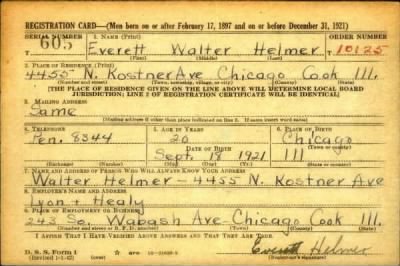 REGISTRATION CARD—(Men born on or after February 17, 1897 and on or before December 31, 1921)
SERIAL NUMBER 1. NAME (Print) ORDER NUMBER
T 605 Everett Walter Helmer T 10125
(First) (Middle) (Last)
2. PLACE OF RESIDENCE (Print)
4455 N. Kostner Ave Chicago Cook Ill.
(Number and street) (Town, township, village, or city) (County) (State)
[THE PLACE OF RESIDENCE GIVEN ON THE LINE ABOVE WILL DETERMINE LOCAL BOARD
JURISDICTION; LINE 2 OF REGISTRATION CERTIFICATE WILL BE IDENTICAL]
3. MAILING ADDRESS
Same
(Mailing address if other than place indicated on line 2. If same insert word same)
4. TELEPHONE 5. AGE IN YEARS 6. PLACE OF BIRTH
Pen. 8344 20 Chicago
DATE OF BIRTH (Town or county)
Sept. 18 1921 Ill
(Exchange) (Number) (Mo.) (Day) (Yr.) (State or country)
7. NAME AND ADDRESS OF PERSON WHO WILL ALWAYS KNOW YOUR ADDRESS
Walter Helmer - 4455 N. Kostner Ave
8. EMPLOYER'S NAME AND ADDRESS
Lyon + Healy
9. PLACE OF EMPLOYMENT OR BUSINESS
243 So. Wabash Ave - Chicago Cook Ill.
(Number and street or R. F. D. number) (Town) (County) (State)
I AFFIRM THAT I HAVE VERIFIED ABOVE ANSWERS AND THAT THEY ARE TRUE.
D. S. S. Form 1
(Revised 1-1-42) (over) Everett Helmer